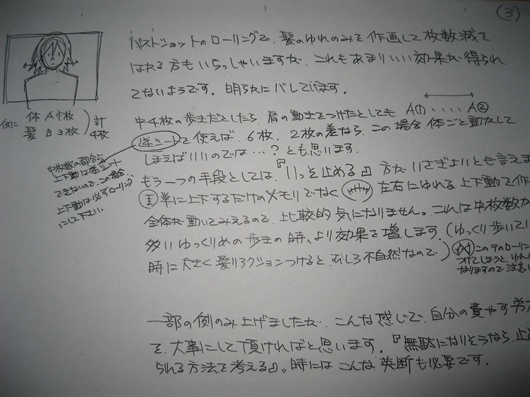 ③
バストショットのローリングで、髪のゆれのみを作画して枚数減で
はかる方もいらっしゃいますが、これもあまりいい効果が得られ
てないようです。明らかにバレています。
例に 体 A 1枚
髪 B 3枚 計4枚
中4枚の歩きだとしたら肩の動きをつけたとしても Aの……A②
逆シートを使えば、6枚。2枚の差なら、この場合体ごと動かして
しまえばいいのでは…?とも思います。
上下動は逆シート
できないので、この場合
上下動は必ずローリング
にして下さい
もう一つの手段としては、『いっそ止める』方がいさぎよいとも言えま
単に上下するだけのメモリでなく 左右にゆれる上下動で作
全体が動いてみえるので、比較的気になりません。これは中枚数が
多いゆっくりめの歩きの時、より効果を増します。(ゆっくり歩いてい
時に大きく髪リアクションつけると、むしろ不自然なので)
このテのローリング
なりますので注意
一部の例のみ上げましたが、こんな感じで、自分の費やす労力
を、大事にして頂ければと思います。『無駄になりそうなら、止
られる方法を考える』。時にはこんな決断も必要です。